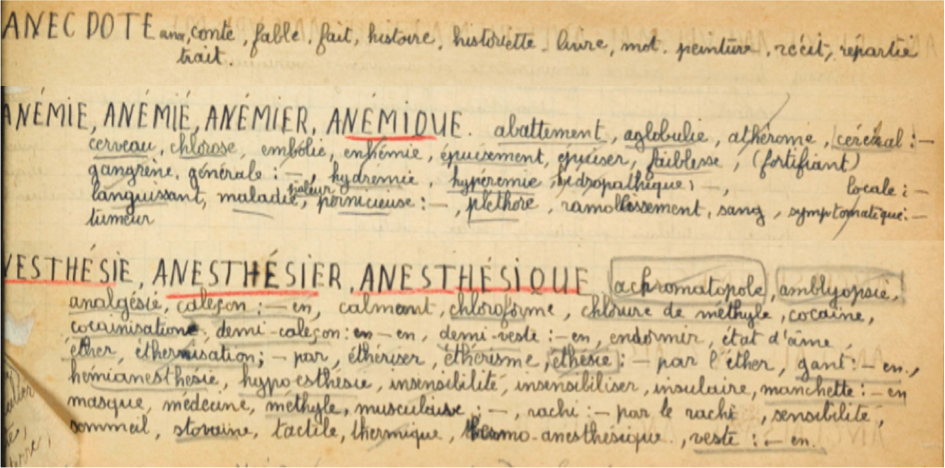 ANECDOTE ana, conte, fable, fait, histoire, historiette, livre, mot, peinture, récit, repartie
trait.
ANÉMIE, ANÉMIÉ, ANÉMIER, ANÉMIQUE. abattement, aglobulie, athérome, cérébral : —
cerveau, chlorose, embolie, enhémie, épuisement, épuiser, faiblesse, (fortifiant)
gangrène, générale : —, hydremie, hyperemie, hydropathique : —, locale : —
languissant, maladie, pâleur, pernicieuse : —, pléthore, ramollissement, sang, symptomatique : —
tumeur
NESTHÉSIE, ANESTHÉSIER, ANESTHÉSIQUE achromatopole, amblyopsie,
analgésie, caleçon : — en, calmant, chloroforme, chlorure de méthyle, cocaïne,
cocaïnisation, demi-caleçon : en — en, demi-veste : — en, endormir, état d'âme
éther, éthernisation ; — par, éthériser, éthérisme, ethésie : — par l'éther, gant : — en,
hémianesthésie, hypoesthésie, insensibilité, insensibiliser, insulaire, manchette : — en
masque, médecine, méthyle, musculaire : —, rachi : — par le rachi, sensibilité,
sommeil, stovaïne, tactile, thermique, thermo-anesthésique, veste : — en.